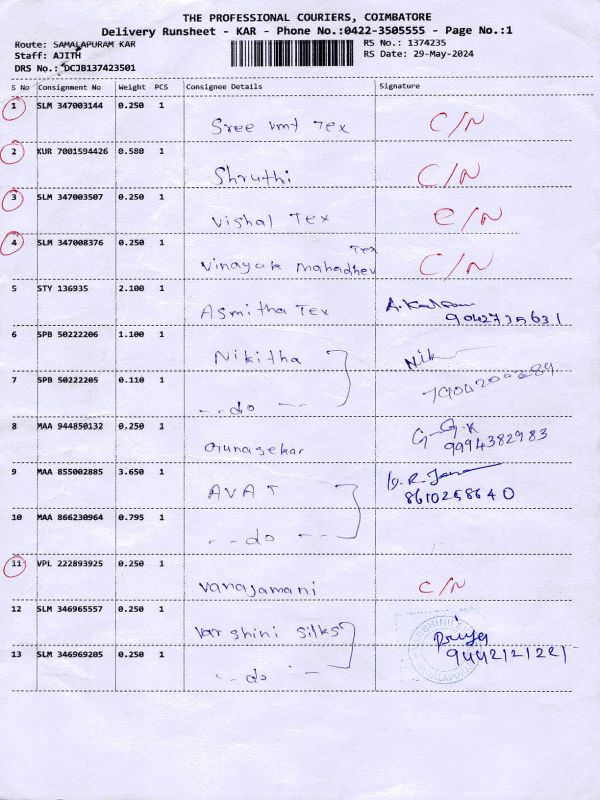 THE PROFESSIONAL COURIERS, COIMBATORE
Delivery Runsheet - KAR - Phone No.:0422-3505555 - Page No.:1
Route: SAMALAPURAM KAR RS No.: 1374235
Staff: AJITH RS Date: 29-May-2024
DRS No.: DCJB137423501
S No Consignment No Weight PCS Consignee Details Signature
1 SLM 347003144 0.250 1 Sree vmt Tex C/N
2 KUR 7001594426 0.580 1 Shruthi C/N
3 SLM 347003507 0.250 1 Vishal Tex C/N
4 SLM 347008376 0.250 1 Vinayak mahadhev Tex C/N
5 STY 136935 2.100 1 Asmitha Tex
9042735631
6 SPB 50222206 1.100 1 Nikitha Nik
7 SPB 50222205 0.110 1 --do--
8 MAA 944850132 0.250 1 Gunasekar G.G.K
9994382983
9 MAA 855002885 3.650 1 AVAT
8610258640
10 MAA 866230964 0.795 1 --do--
11 VPL 222893925 0.250 1 Vanajamani C/N
12 SLM 346965557 0.250 1 Varshini Silks Priya
13 SLM 346969205 0.250 1 --do--